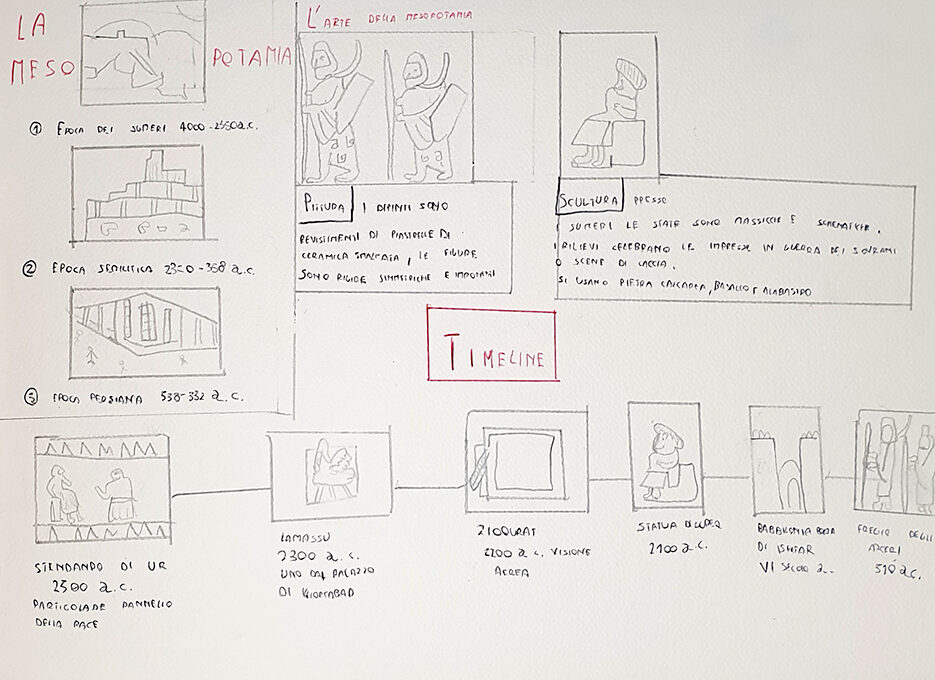 LA
MESO
POTAMIA
① EPOCA DEI SUMERI 4000-2350 a.C.
② EPOCA SEMITICA 2350-358 a.C.
③ EPOCA PERSIANA 538-332 a.C.
L'ARTE DELLA MESOPOTAMIA
PITTURA I DIPINTI SONO
RIVESTIMENTI DI PIASTRELLE DI
CERAMICA SMALTATA, LE FIGURE
SONO RIGIDE SIMMETRICHE E IMPONENTI
SCULTURA PRESSO
I SUMERI LE STATUE SONO MASSICCE E SCHEMATICHE.
I RILIEVI CELEBRANO LE IMPRESE IN GUERRA DEI SOVRANI
O SCENE DI CACCIA.
SI USANO PIETRA CALCAREA, BASALTO E ALABASTRO
TIMELINE
STENDARDO DI UR
2500 a.C.
PARTICOLARE PANNELLO
DELLA PACE
LAMASSU
2300 a.C.
UNO DAL PALAZZO
DI KHORSABAD
ZIGGURAT
2200 a.C. VISIONE
AEREA
STATUA DI GUDEA
2100 a.C.
BABILONIA PORTA
DI ISHTAR
VI SECOLO a.
FREGIO DEGLI
ARCIERI
510 a.C.